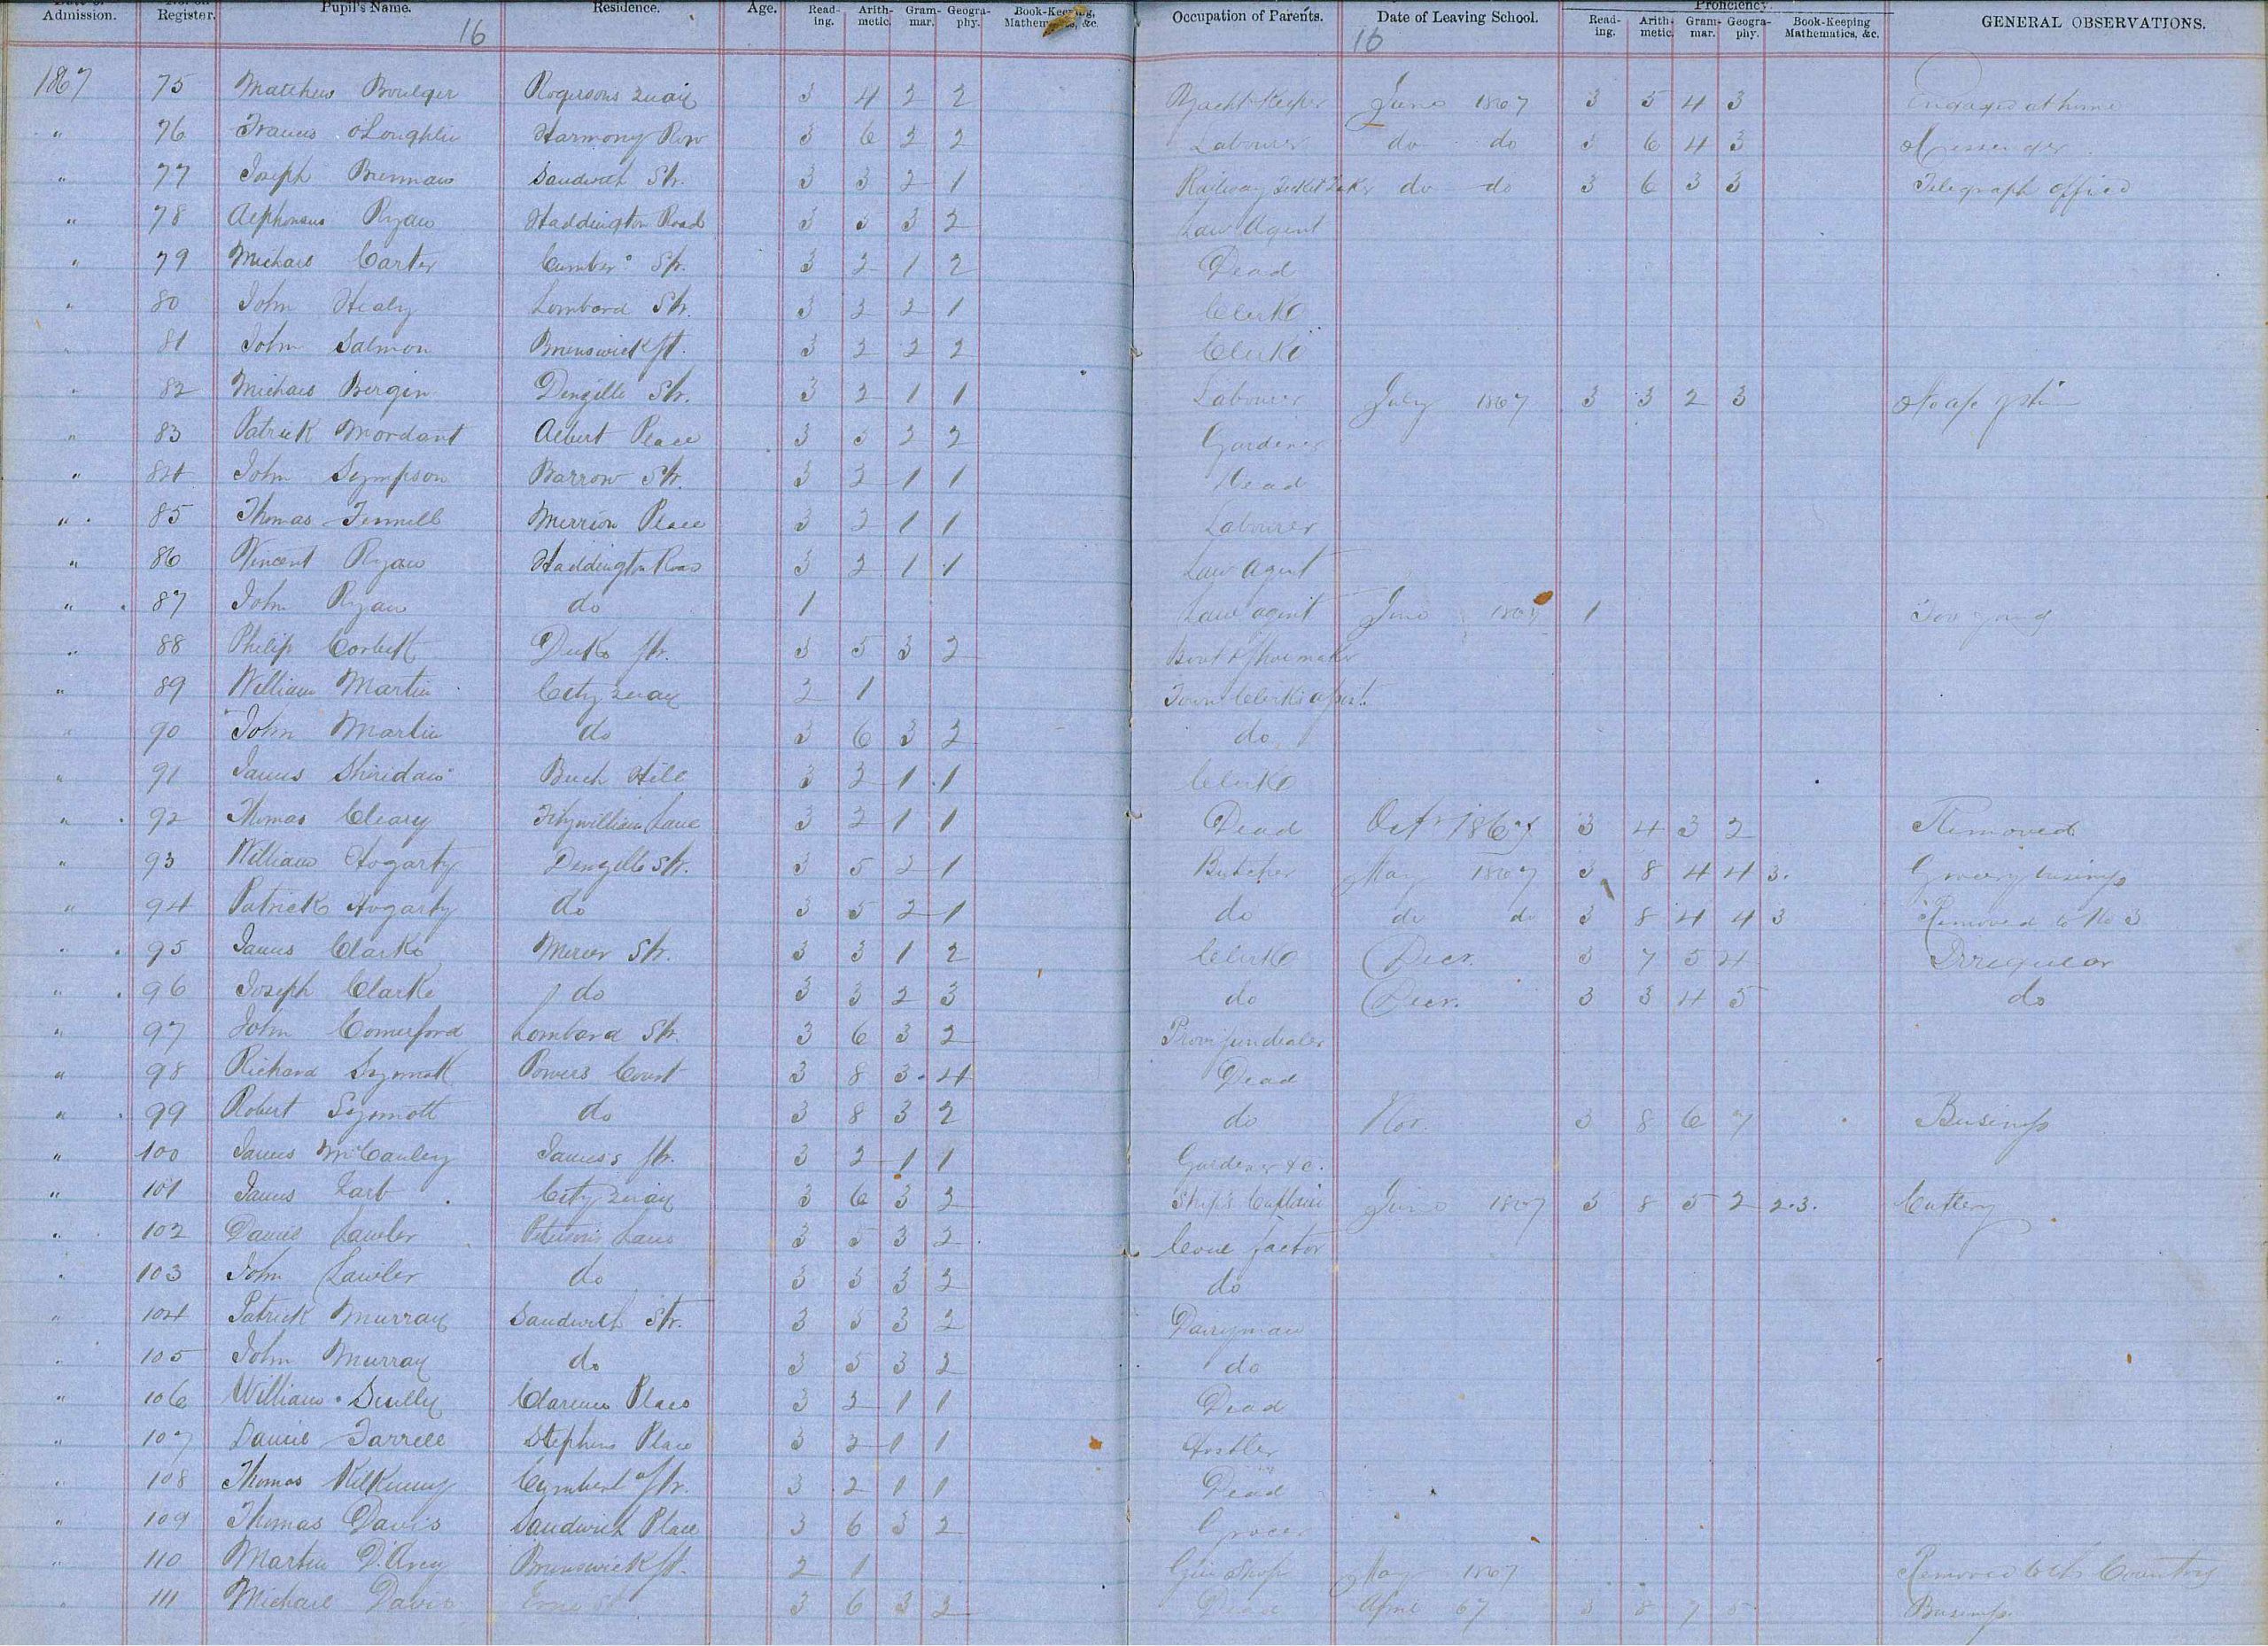 Admission. Register. Pupil's Name. Residence. Age. Read-ing. Arith-metic. Gram-mar. Geogra-phy. Book-Keeping, Mathematics, &c. Occupation of Parents. Date of Leaving School. Proficiency. Read-ing. Arith-metic. Gram-mar. Geogra-phy. Book-Keeping Mathematics, &c. GENERAL OBSERVATIONS.
16 16
1867 75 Matthew Boulger Rogersons Quay 3 4 2 2 Yacht Keeper June 1867 3 5 4 3 Engaged at home
" 76 Francis O'Loughlin Harmony Row 3 6 2 2 Labourer do do 3 6 4 3 Messenger
" 77 Joseph Brennan Sandwith Str. 3 3 2 1 Railway Ticket Taker do do 3 6 3 3 Telegraph Office
" 78 Alphonsus Ryan Haddington Road 3 3 3 2 Law Agent
" 79 Michael Carter Cumber° Str. 3 2 1 2 Dead
" 80 John Healy Lombard Str. 3 2 2 1 Clerk
" 81 John Salmon Brunswick St. 3 2 2 2 Clerk
" 82 Michael Bergin Denzille Str. 3 2 1 1 Labourer July 1867 3 3 2 3
" 83 Patrick Mordant Albert Place 3 3 2 2 Gardener
" 84 John Sympson Barrow Str. 3 2 1 1 Dead
" 85 Thomas Fennell Merrion Place 3 2 1 1 Labourer
" 86 Vincent Ryan Haddington Road 3 2 1 1 Law Agent
" 87 John Ryan do 1 Law agent June 1867 1 Too young
" 88 Philip Corbett Duke Str. 3 5 3 2 Boot & Shoe maker
" 89 William Martin City Quay 2 1 Town Clerks assist.
" 90 John Martin do 3 6 3 2 do
" 91 James Sheridan Buck Hill 3 2 1 1 Clerk
" 92 Thomas Cleary Fitzwilliam Lane 3 2 1 1 Dead Octr 1867 3 4 3 2 Removed
" 93 William Hogarty Denzille Str. 3 5 2 1 Butcher May 1867 3 8 4 4 3. Grocery business
" 94 Patrick Hogarty do 3 5 2 1 do do do 3 8 4 4 3 Removed to No 3
" 95 James Clarke Mercer Str. 3 3 1 2 Clerk Decr. 3 7 5 4 Irregular
" 96 Joseph Clarke do 3 3 2 3 do Decr. 3 3 4 5 do
" 97 John Comerford Lombard Str. 3 6 3 2 Provision dealer
" 98 Richard Szymott Powers Court 3 8 3 4 Dead
" 99 Robert Szymott do 3 8 3 2 do Nov. 3 8 6 7 Business
" 100 James McCauley James's Str. 3 2 1 1 Gardener &c.
" 101 James Tart City Quay 3 6 3 2 Ships Captain June 1867 3 8 5 2 2.3. Cutlery
" 102 Daniel Lawler Petersons Lane 3 5 3 2 Coal factor
" 103 John Lawler do 3 3 3 2 do
" 104 Patrick Murray Sandwith Str. 3 5 3 2 Dairyman
" 105 John Murray do 3 5 3 2 do
" 106 William Scully Clarence Place 3 2 1 1 Dead
" 107 Daniel Farrell Stephens Place 3 2 1 1 Hostler
" 108 Thomas Kilkenny Cumberl Str. 3 2 1 1 Dead
" 109 Thomas Davis Sandwith Place 3 6 3 2 Grocer
" 110 Martin D'Arcy Brunswick St. 2 1 Gun Shop May 1867 Removed to the Country
" 111 Michael Davis Erne St 3 6 3 2 Dead April 67 3 8 7 5 Business